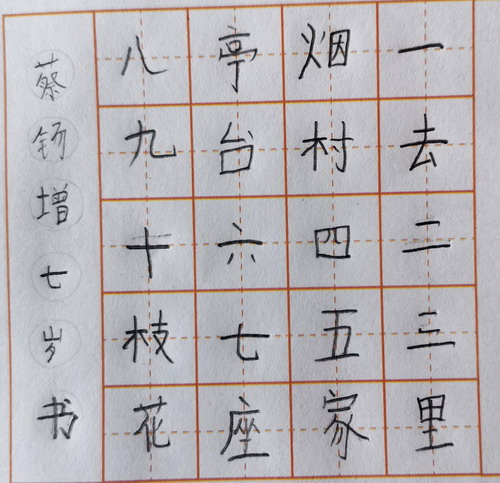 一去二三里
烟村四五家
亭台六七座
八九十枝花
蔡钖增七岁书